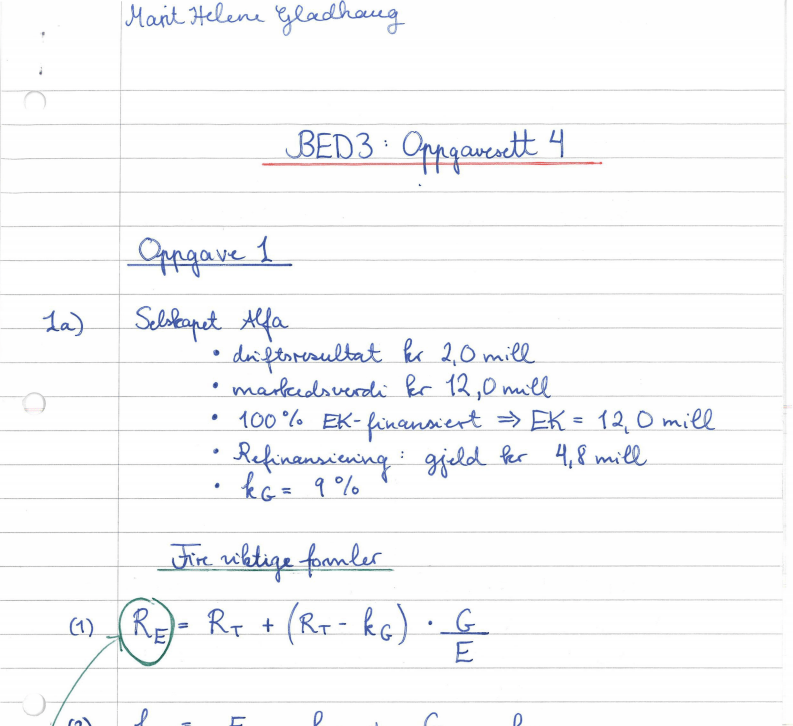 Marit Helene Gladhaug
BED3: Oppgavesett 4
Oppgave 1
1a) Selskapet Alfa
• driftsresultat kr 2,0 mill
• markedsverdi kr 12,0 mill
• 100% EK-finansiert ⇒ EK = 12,0 mill
• Refinansiering: gjeld kr 4,8 mill
• kG = 9%
Fire viktige formler
(1) RE = RT + (RT - kG) · G/E